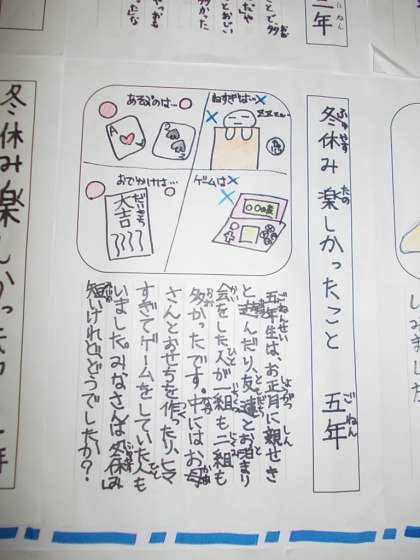 五年
冬休み 楽しかったこと 五年
ねすぎは…×
あそぶのは…○
A
ゲームは×
おでかけは…○
大吉
五年生は、お正月に親せき
と遊んだり、友達とお泊まり
会をした人が一組も二組も
多かったです。中にはお母
さんとおせちを作ったり、ヒマ
すぎてゲームをしていた人も
いました。みなさんは冬休み
短いけれど、どうでしたか?
冬休み楽しかった